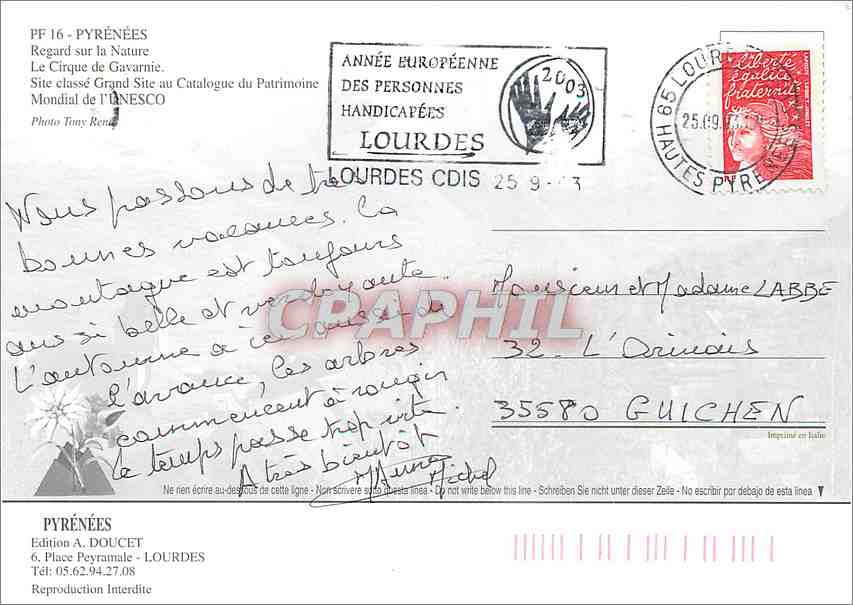 PF 16 - PYRÉNÉES
Regard sur la Nature
Le Cirque de Gavarnie.
Site classé Grand Site au Catalogue du Patrimoine
Mondial de l'UNESCO
Photo Tony René
ANNÉE EUROPÉENNE
DES PERSONNES
HANDICAPÉES
LOURDES
2003
LOURDES CDIS 25 9
65 LOUR
25.09.
HAUTES PYRE
liberté
égalité
fraternité
Nous passons de très
bonnes vacances. La
montagne est toujours
aussi belle et verdoyante.
L'automne a ici aussi de
l'avance, les arbres
commencent à rougir
le temps passe trop vite.
A très bientôt
Michel
Monsieur et Madame LABBE
32 - L'Orinais
35580 GUICHEN
Imprimé en Italie
CPAPHIL
Ne rien écrire au-dessous de cette ligne - Non scrivere sotto questa linea - Do not write below this line - Schreiben Sie nicht unter dieser Zeile - No escribir por debajo de esta linea
PYRÉNÉES
Edition A. DOUCET
6, Place Peyramale - LOURDES
Tél: 05.62.94.27.08
Reproduction Interdite